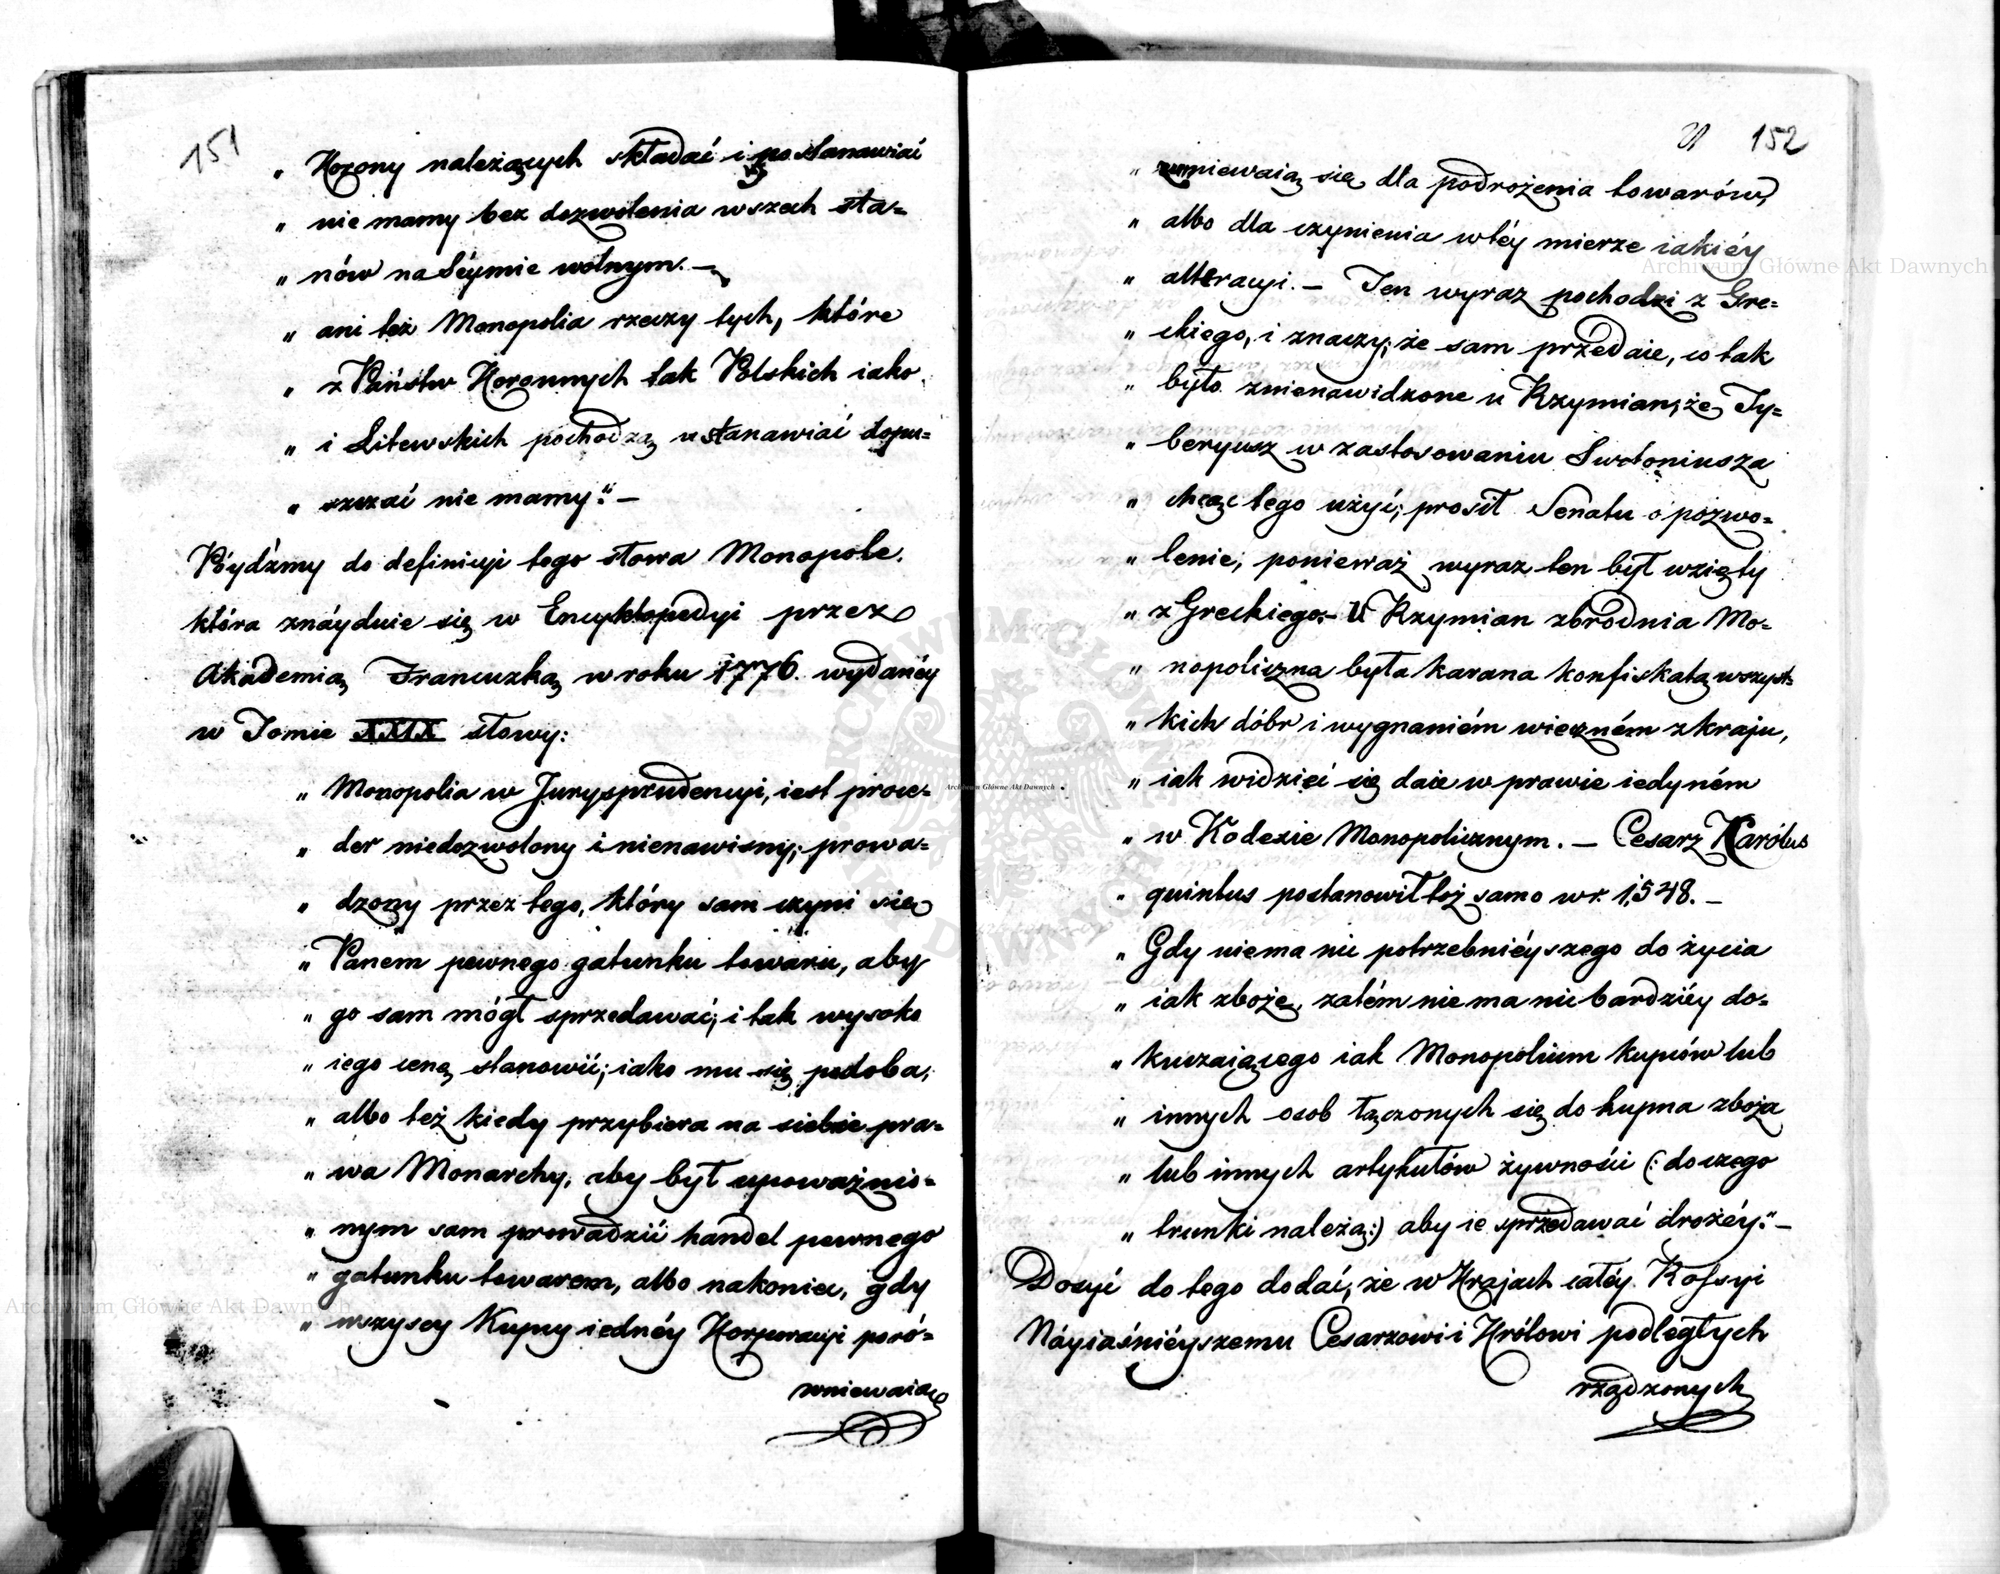 151
„ Korony należących składać i postanawiać
„ nie mamy bez dozwolenia wszech sta=
„ nów na Séymie wolnym. —
„ ani też Monopolia rzeczy tych, które
„ z Państw Koronnych tak Polskich iako
„ i Litewskich pochodzą ustanawiać dopu=
„ szczać nie mamy." —
Póydźmy do definicyi tego słowa Monopole.
która znáyduie się w Encyklopedyi przez
Akademią Francuzką w roku 1776. wydanéy
w Tomie XXIX słowy:
„ Monopolia w Jurysprudencyi, iest proce=
„ der niedozwolony i nienawisny; prowa=
„ dzony przez tego, który sam czyni się
„ Panem pewnego gatunku towaru, aby
„ go sam mógł sprzedawać; i tak wysoko
„ iego cenę stanowić; iako mu się podoba,
„ albo też kiedy przybiera na siebie pra=
„ wa Monarchy, aby był upoważnio=
„ nym sam prowadzić handel pewnego
„ gatunku towarem, albo nakoniec, gdy
„ wszyscy Kupcy iednéy Korporacyi poró=
wniewaią
152
„ zumiewaią się dla podrożenia towarów,
„ albo dla czynienia w téy mierze iakiéy
„ alteracyi. — Ten wyraz pochodzi z Gre=
„ ckiego, i znaczy; że sam przedaie, co tak
„ było znienawidzone u Rzymian, że Ty=
„ beryusz w zastosowaniu Swetoniusza
„ chcąc tego użyć; prosił Senatu o pozwo=
„ lenie; ponieważ wyraz ten był wzięty
„ z Greckiego. — U Rzymian zbrodnia Mo=
„ nopoliczna była karana konfiskatą wszyst=
„ kich dóbr i wygnaniém wieczném z kraju,
„ iak widzieć się daie w prawie iedyném
„ w Kodexie Monopolicznym. — Cesarz Karólus
„ quintus postanowił toż samo w r. 1548. —
„ Gdy niema nic potrzebniéyszego do życia
„ iak zboże, zatém nie ma nic bardziéy do=
„ kuczaiącego iak Monopolium kupców lub
„ innych osob łączonych się do kupna zboża
„ lub innych artykułów żywności (: do czego
„ trunki należą :) aby ie sprzedawać drożéy." —
Dosyć do tego dodać, że w Krajach całéy Rossyi
Náyiaśniéyszemu Cesarzowi i Królowi podległych
rządzonych
Archiwum Główne Akt Dawnych